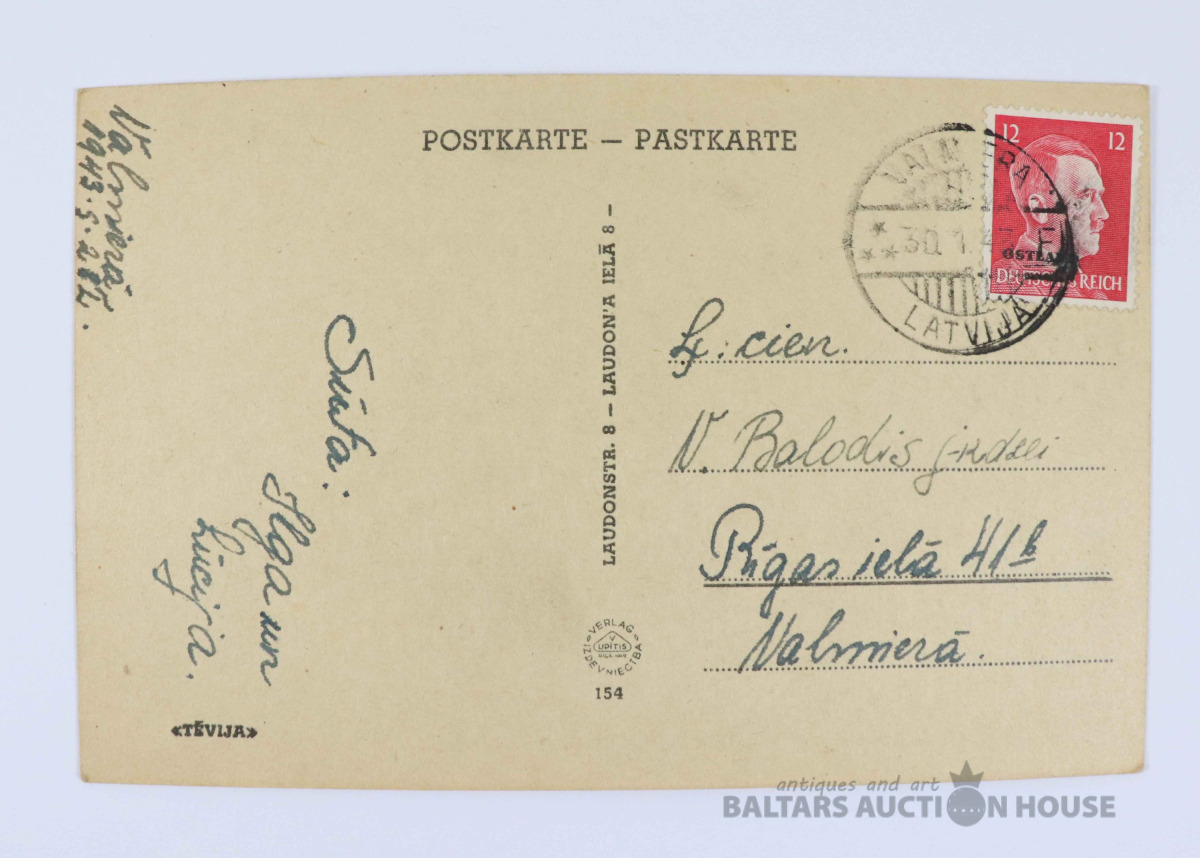 POSTKARTE — PASTKARTE
Valmierā
1943.g.28.I.
Sūta:
Ilga un
Lūcija.
«TĒVIJA»
LAUDONSTR. 8 — LAUDON'A IELĀ 8 —
VERLAG
V
UPĪTIS
IZDEVNIECĪBA
154
12 12
OSTLAND
DEUTSCHES REICH
VALMIERA
30.1.43
LATVIJA
Lj. cien.
V. Balodis j-kdzei
Rīgas ielā 41b
Valmierā.
antiques and art
BALTARS AUCTION HOUSE